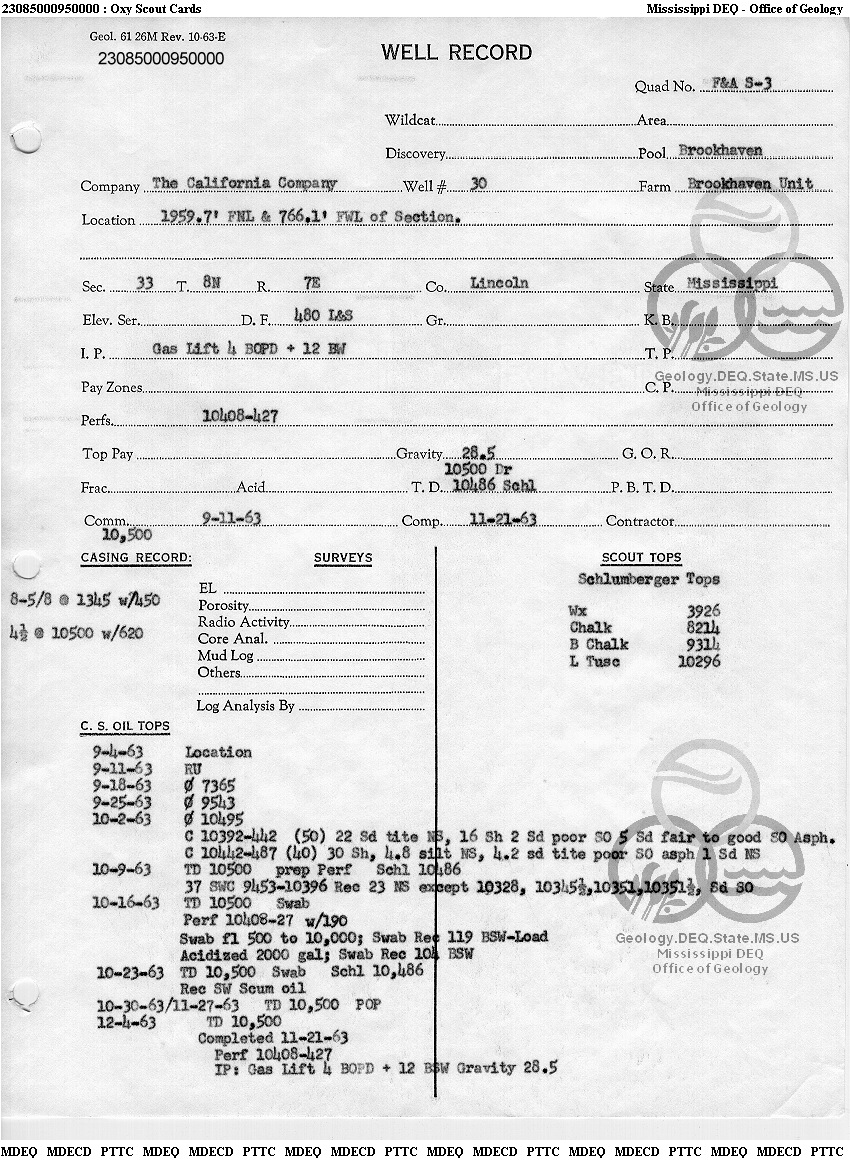 23085000950000 : Oxy Scout Cards Mississippi DEQ - Office of Geology
Geol. 61 26M Rev. 10-63-E
23085000950000
WELL RECORD
Quad No. F&A S-3
Wildcat Area
Discovery Pool Brookhaven
Company The California Company Well # 30 Farm Brookhaven Unit
Location 1959.7' FNL & 766.1' FWL of Section.
Sec. 33 T. 8N R. 7E Co. Lincoln State Mississippi
Elev. Ser. D. F. 480 L&S Gr. K. B.
I. P. Gas Lift 4 BOPD + 12 BW T. P.
Geology.DEQ.State.MS.US
Pay Zones C. P.
Mississippi DEQ
Office of Geology
Perfs. 10408-427
Top Pay Gravity 28.5 G. O. R.
10500 Dr
Frac. Acid T. D. 10486 Schl P. B. T. D.
Comm. 9-11-63 Comp. 11-21-63 Contractor
10,500
CASING RECORD: SURVEYS SCOUT TOPS
Schlumberger Tops
8-5/8 @ 1345 w/450
4½ @ 10500 w/620
EL
Porosity
Radio Activity
Core Anal.
Mud Log
Others
Log Analysis By
Wx 3926
Chalk 8214
B Chalk 9314
L Tusc 10296
C. S. OIL TOPS
9-4-63 Location
9-11-63 RU
9-18-63 Ø 7365
9-25-63 Ø 9543
10-2-63 Ø 10495
C 10392-442 (50) 22 Sd tite NS, 16 Sh 2 Sd poor SO 5 Sd fair to good SO Asph.
C 10442-487 (40) 30 Sh, 4.8 silt NS, 4.2 sd tite poor SO asph 1 Sd NS
10-9-63 TD 10500 prep Perf Schl 10486
37 SWC 9453-10396 Rec 23 NS except 10328, 10345½,10351,10351½, Sd SO
10-16-63 TD 10500 Swab
Perf 10408-27 w/190
Swab fl 500 to 10,000; Swab Rec 119 BSW-Load
Acidized 2000 gal; Swab Rec 104 BSW
10-23-63 TD 10,500 Swab Schl 10,486
Rec SW Scum oil
10-30-63/11-27-63 TD 10,500 POP
12-4-63 TD 10,500
Completed 11-21-63
Perf 10408-427
IP: Gas Lift 4 BOPD + 12 BSW Gravity 28.5
Geology.DEQ.State.MS.US
Mississippi DEQ
Office of Geology
MDEQ MDECD PTTC MDEQ MDECD PTTC MDEQ MDECD PTTC MDEQ MDECD PTTC MDEQ MDECD PTTC MDEQ MDECD PTTC